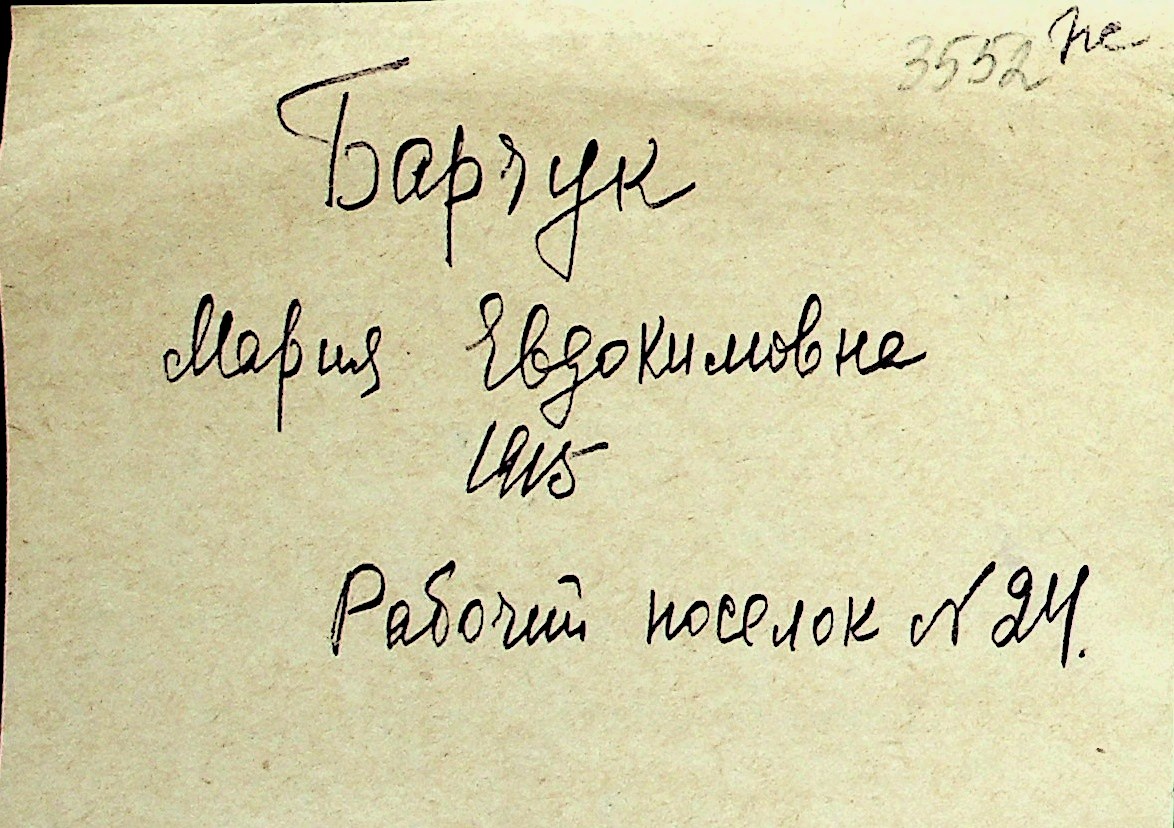 3552 не
Барчук
Мария Евдокимовна
1915
Рабочий поселок № 24.